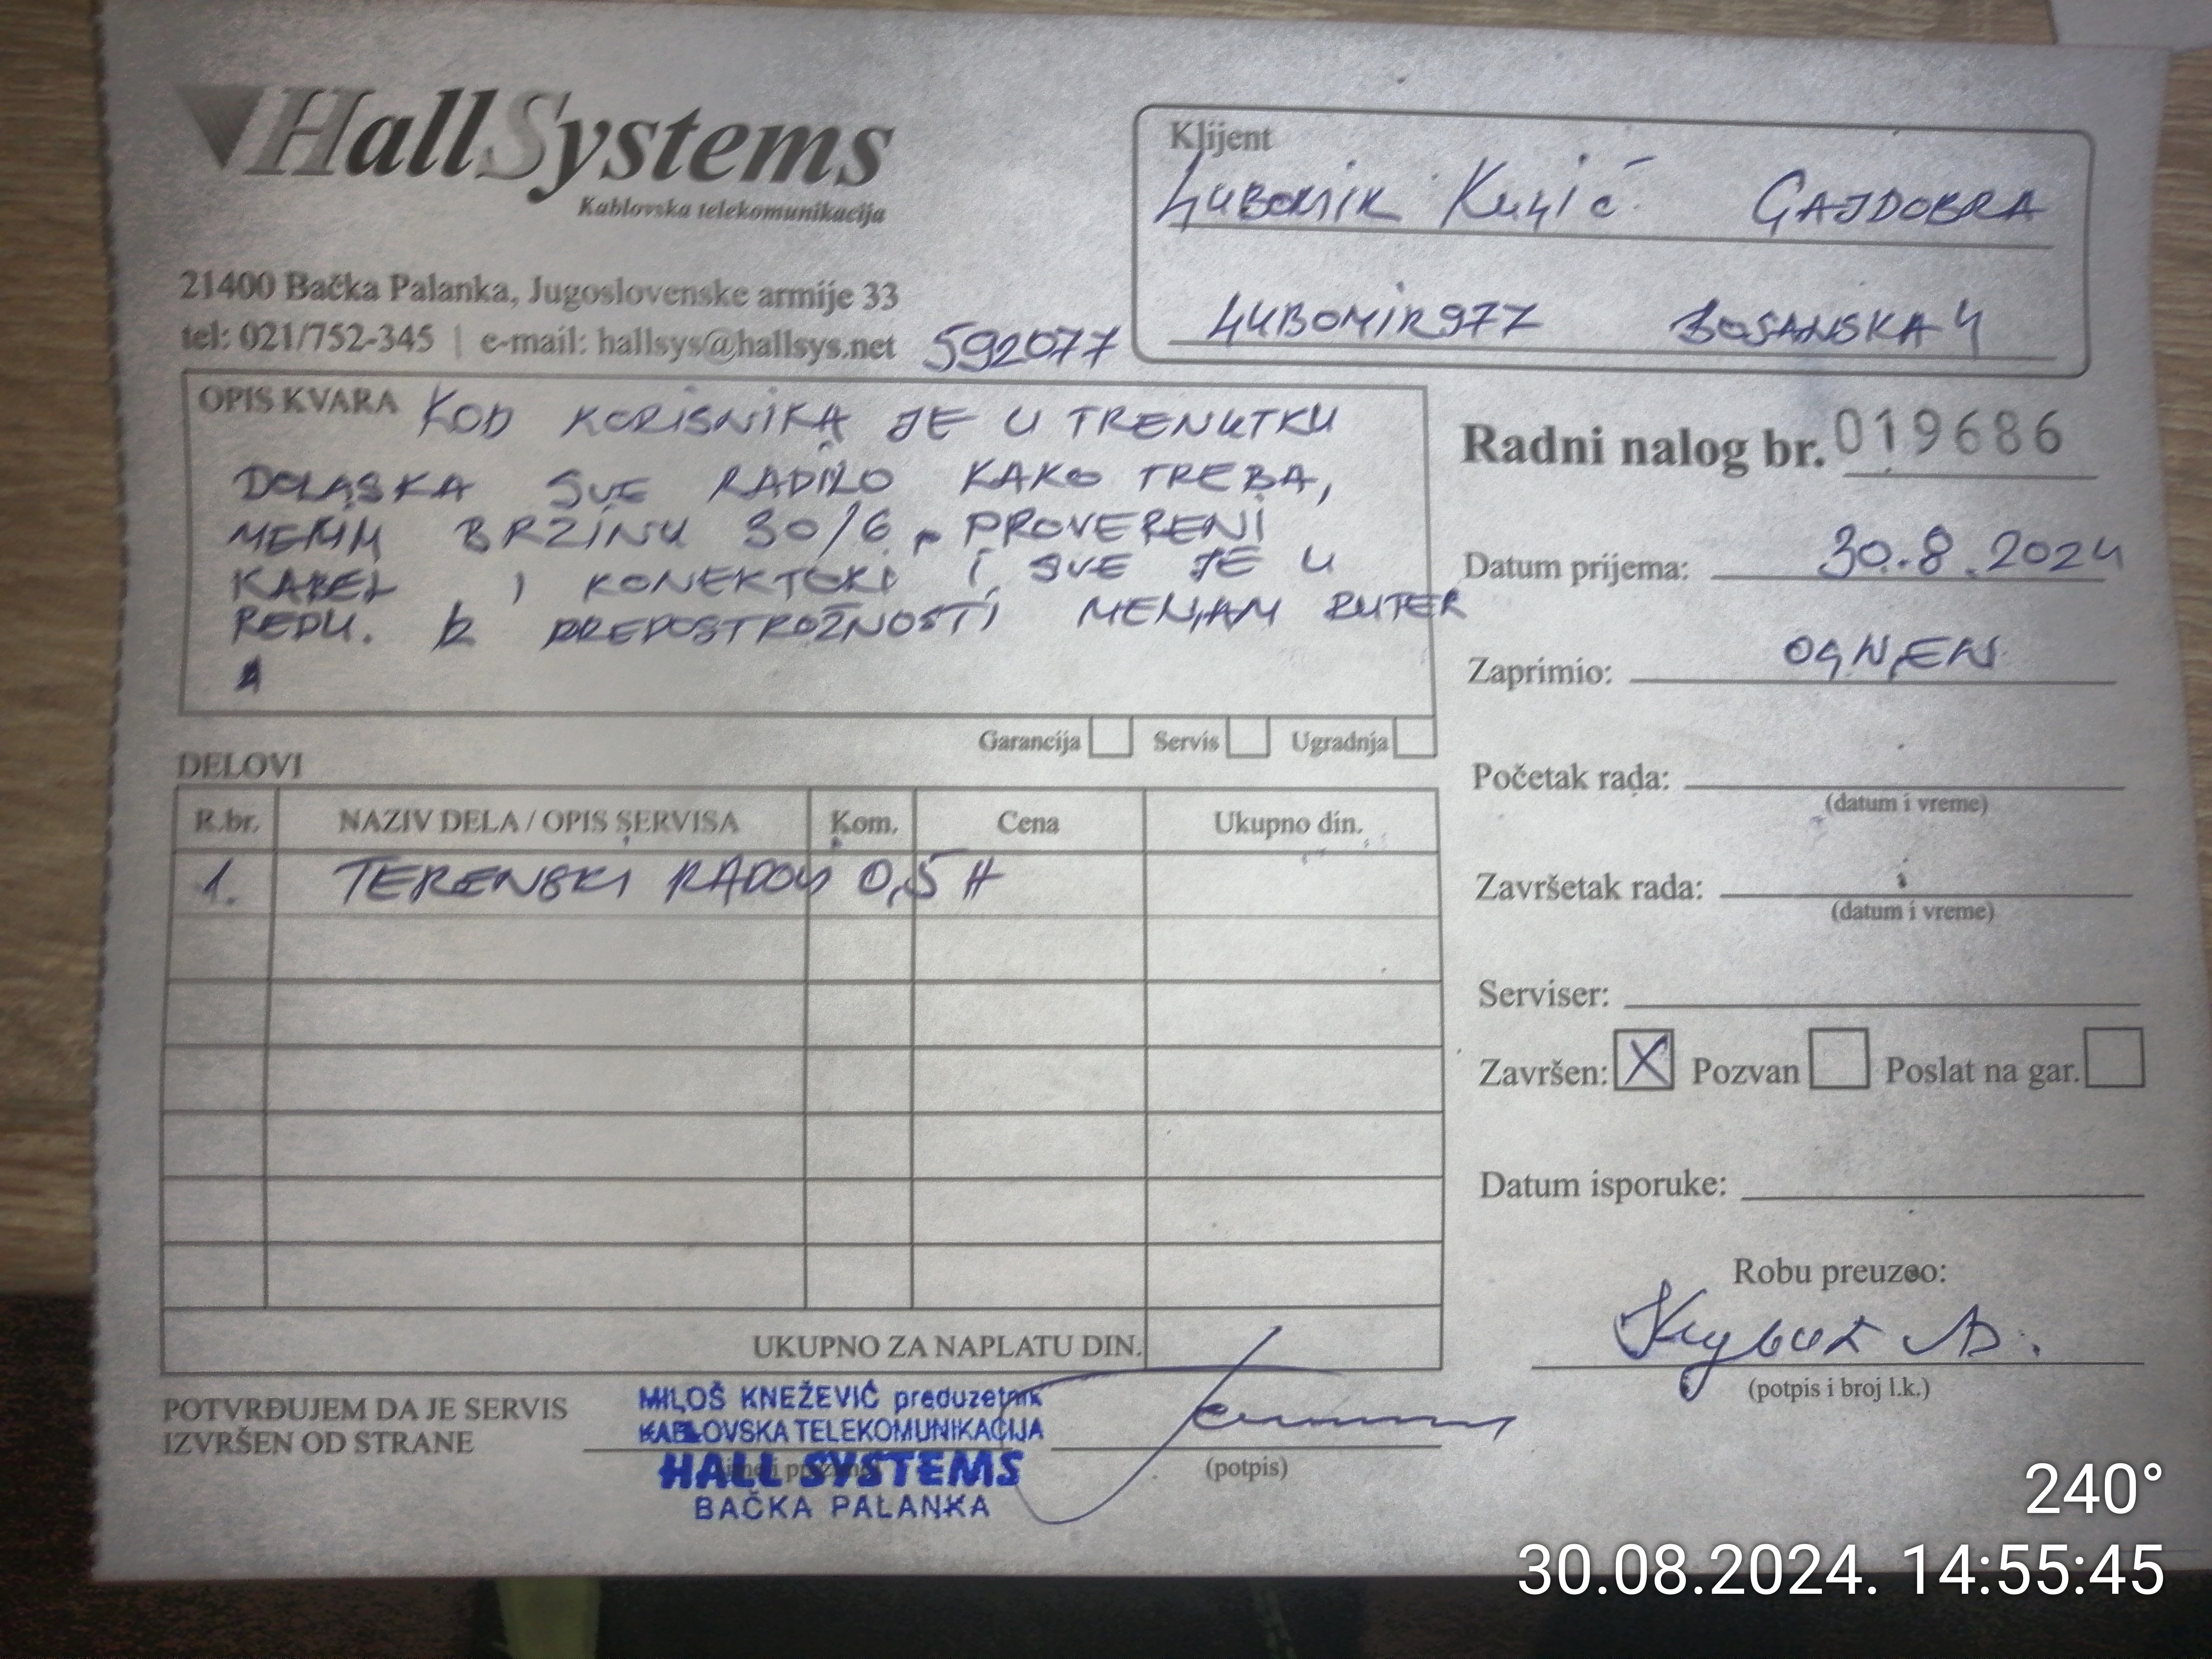 HallSystems
Kablovska telekomunikacija
21400 Bačka Palanka, Jugoslovenske armije 33
tel: 021/752-345 | e-mail: hallsys@hallsys.net
592077
Klijent
GAJDOBRA
LJUBOMIR977 BOSANSKA 4
OPIS KVARA KOD KORISNIKA JE U TRENUTKU
DOLASKA SVE RADILO KAKO TREBA,
MERIM BRZINU 30/6, PROVERENI
KABEL I KONEKTORI I SVE JE U
REDU. IZ PREDOSTROŽNOSTI MENJAM RUTER
Garancija Servis Ugradnja
Radni nalog br. 019686
Datum prijema: 30.8.2024
Zaprimio: OGNJEN
Početak rada:
(datum i vreme)
Završetak rada:
(datum i vreme)
Serviser:
Završen: X Pozvan Poslat na gar.
Datum isporuke:
Robu preuzeo:
(potpis i broj l.k.)
DELOVI
R.br. NAZIV DELA / OPIS SERVISA Kom. Cena Ukupno din.
1. TERENSKI RADOVI 0,5 H
UKUPNO ZA NAPLATU DIN.
POTVRĐUJEM DA JE SERVIS
IZVRŠEN OD STRANE
MILOŠ KNEŽEVIĆ preduzetnik
KABLOVSKA TELEKOMUNIKACIJA
HALL SYSTEMS
BAČKA PALANKA
(potpis)
240°
30.08.2024. 14:55:45